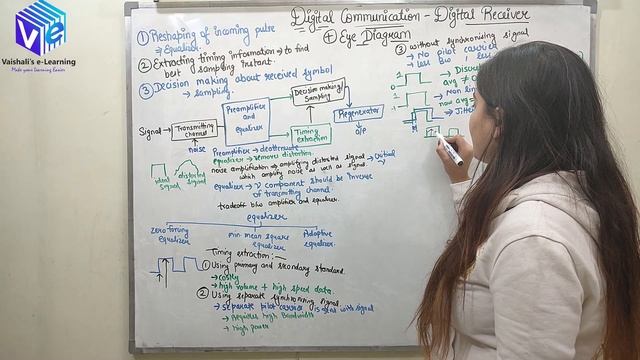 Vaishali's e-Learning
Make your Learning Easier
Digital Communication - Digital Receiver
④ Eye Diagram
① Reshaping of incoming pulse
→ Equaliser
② Extracting timing information → to find
best sampling instant.
③ Decision making about received symbol
→ sampling.
Signal → Transmitting
channel
noise
Preamplifier
and
equalizer
Decision making/
Sampling
Timing
extraction
Regenerator
o/p
Preamplifier → deattenuate
equalizer → removes distortion.
noise amplification → amplifying distorted signal → Critical
which amplify noise as well as signal.
equalizer → component should be inverse
of transmitting channel.
tradeoff b/w amplifier and equalizer.
ideal
signal
distorted
signal
equalizer
zero forcing
equalizer
min. mean square
equalizer
Adaptive
equalizer.
Timing extraction:—
① Using primary and secondary standard.
→ costly
→ high volume + high speed data.
② Using separate synchronising signal.
→ separate pilot carrier is sent with signal
→ Requires high Bandwidth
→ high power
③ without synchronizing signal
→ No pilot carrier
→ less BW, less
1
0
1
-1